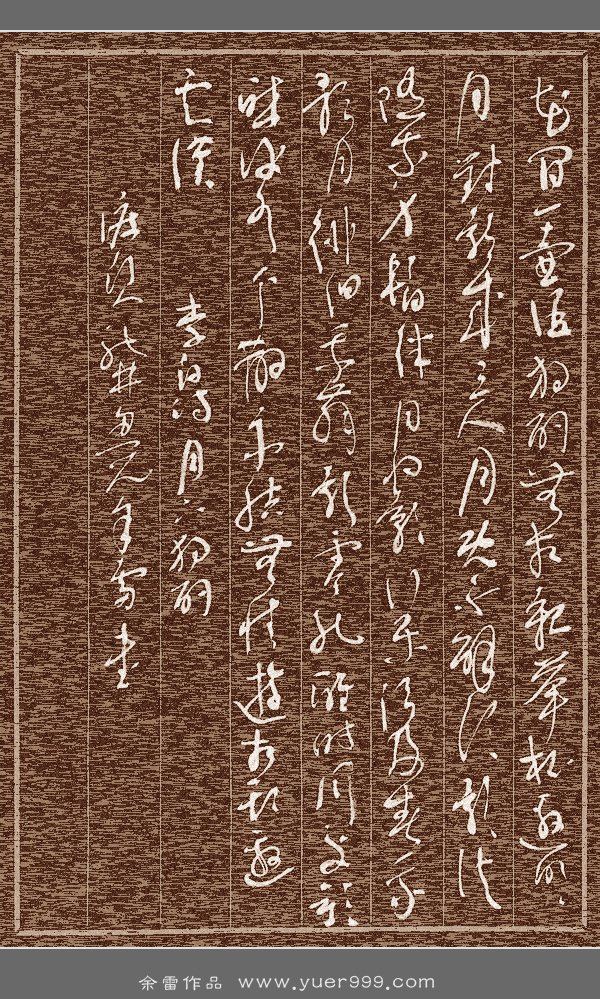 花間一壺酒獨酌無相親舉杯邀明
月對影成三人月既不解飲影徒
隨我身暫伴月將影行樂須及春我
歌月徘徊我舞影零亂醒時同交歡
醉後各分散永結無情遊相期邈
云漢 李白詩月下獨酌
雷書
余雷作品 www.yuer999.com